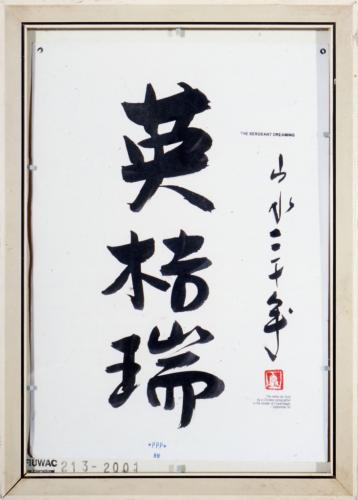 英桔瑞
THE SERGEANT DREAMING
山水二千年
*PPP*
213-2001